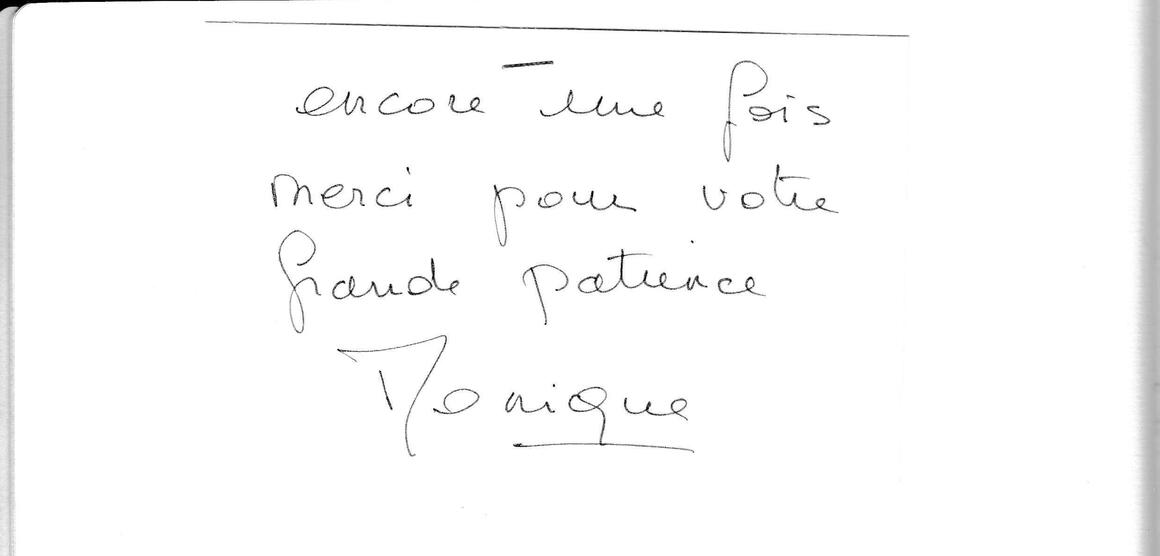 encore une fois
merci pour votre
grande patience
Monique